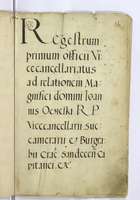 Regestrum
primum officii Vi
cecancellariatus
ad relationem Ma
gnifici domini Joan
nis Ocieski R. P.
Vicecancellarii Suc
camerarii & Burgra
bii Crac. Sandecen Ca
pitanei. &c.